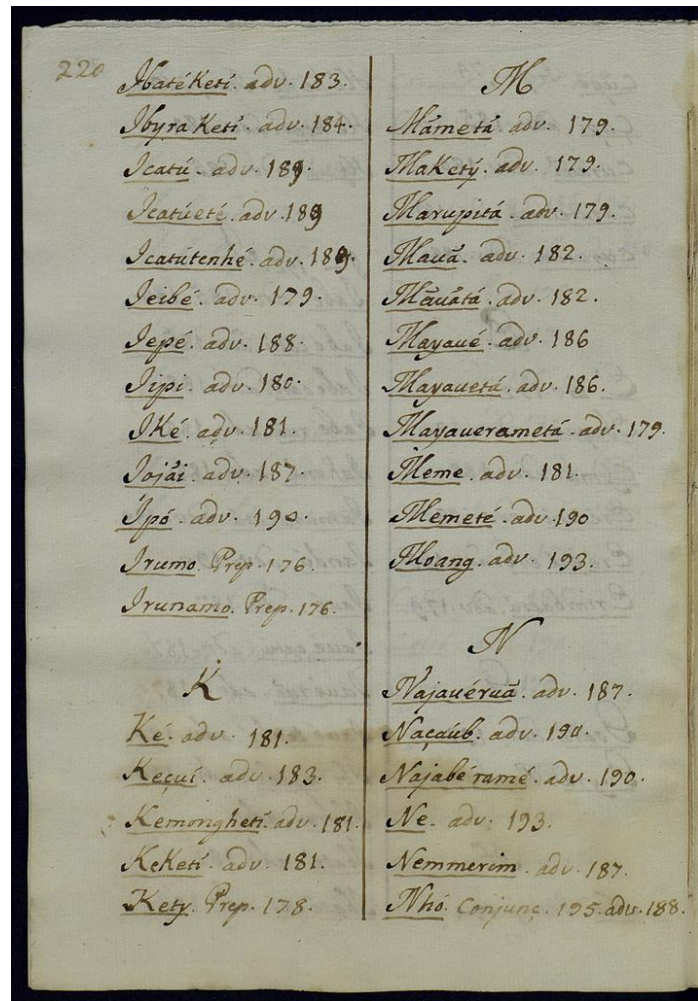 220
Ibatéketí. adv. 183.
Ibyraketi. adv. 184.
Icatú. adv. 189.
Icatúeté. adv. 189
Icatútenhé. adv. 189.
Ieibé. adv. 179.
Iepé. adv. 188.
Iipi. adv. 180.
IKé. adv. 181.
Iojái. adv. 187.
Ipó. adv. 190.
Irumo. Prep. 176.
Irunamo. Prep. 176.
K
Ké. adv. 181.
Keçuí. adv. 183.
Kemonghetí. adv. 181.
KeKetí. adv. 181.
Kety. Prep. 178.
M
Mámetá. adv. 179.
MaKetý. adv. 179.
Marupitá. adv. 179.
Mauã. adv. 182.
Mãuãtá. adv. 182.
Mayaué. adv. 186
Mayauetá. adv. 186.
Mayauerametá. adv. 179.
Meme. adv. 181.
Memeté. adv. 190
Moang. adv. 193.
N
Najauéruã. adv. 187.
Naçáub. adv. 190.
Najabéramé. adv. 190.
Ne. adv. 193.
Nemmerim. adv. 187.
Nhó. Conjunç. 195. adv. 188.